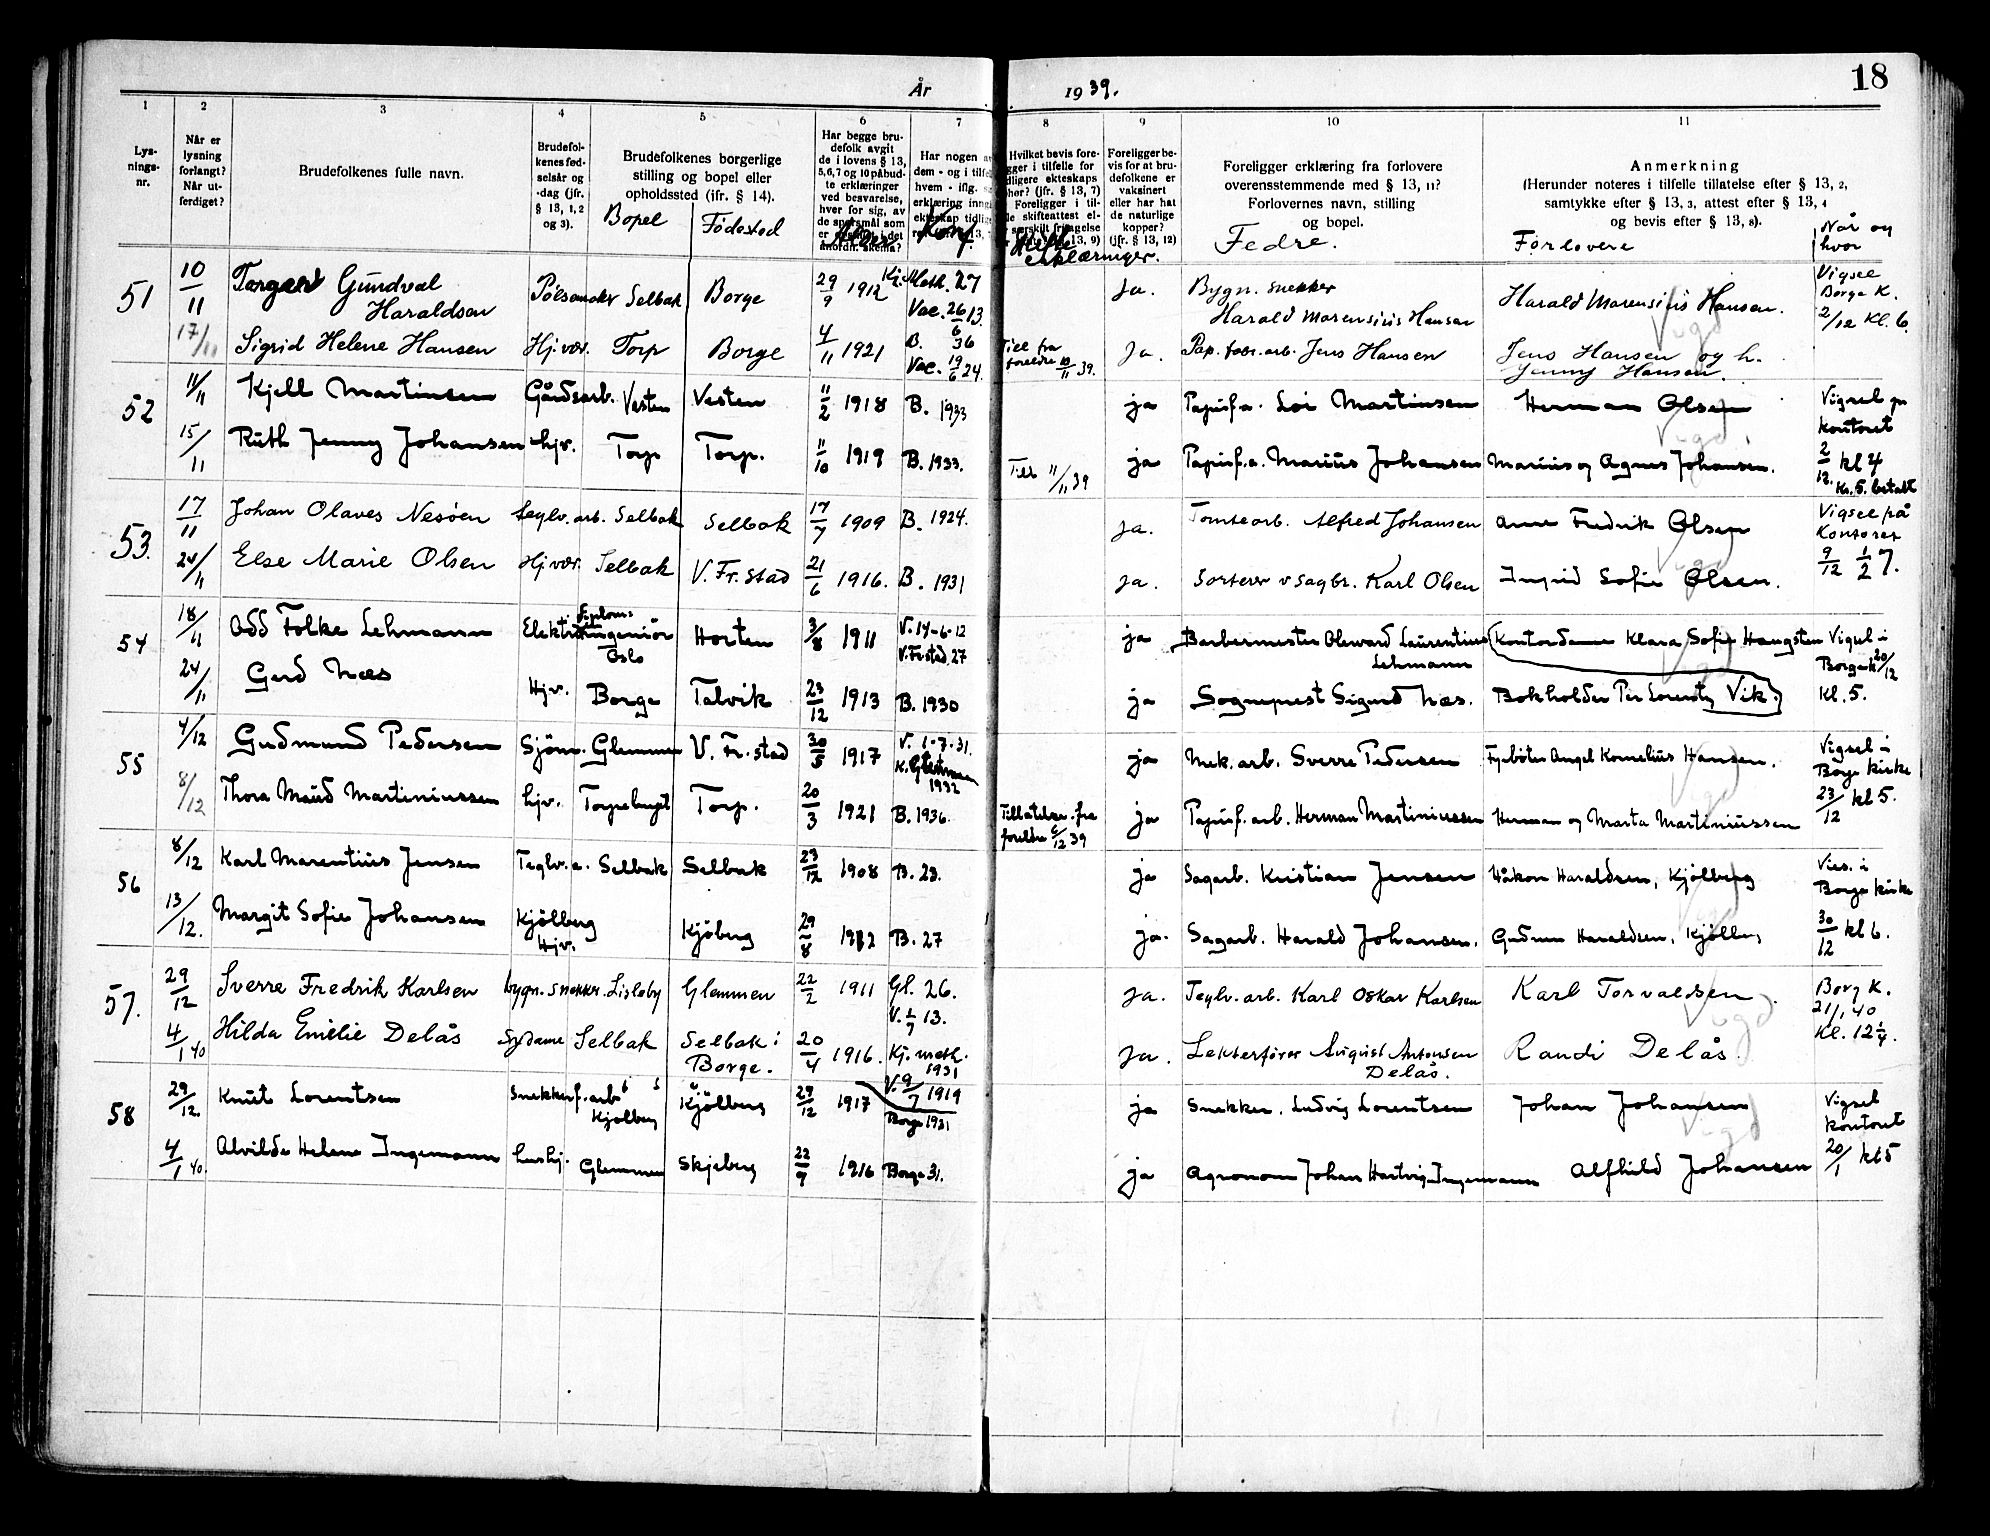 18
År 1939.
1 2 3 4 5 6 7 8 9 10 11
Lysnings-nr.
Når er lysning forlangt? Når utferdiget?
Brudefolkenes fulle navn.
Brudefolkenes fødselsår og -dag (jfr. § 13, 1, 2 og 3).
Brudefolkenes borgerlige stilling og bopel eller opholdssted (jfr. § 14).
Bopel Födested
Har begge brudefolk avgit de i lovens § 13, 5, 6, 7 og 10 påbudte erklæringer ved besvarelse, hver for sig, av de spørsmål som er
Alder
Har nogen av dem - og i tilfelle hvem - iflg.
Konf.
Hvilket bevis
Hefte erklæringer.
Foreligger bevis for at brudefolkene er vaksinert eller har hat de naturlige kopper? (jfr. § 13, 12)
Foreligger erklæring fra forlovere overensstemmende med § 13, 11? Forlovernes navn, stilling og bopel.
Fedre.
Anmerkning
(Herunder noteres i tilfelle tillatelse efter § 13, 2, samtykke efter § 13, 3, attest efter § 13, 4 og bevis efter § 13, 8).
Forlovere
Når og hvor
51 10/11 Torger Gundval Haraldsen Pølsemaker Selbak Borge 29/9 1912 Kj. Meth. 27 Vac. 26/6 13. Ja. Bygn. snekker Harald Marensius Hansen Harald Marensius Hansen. Vigsel Borge K. 2/12 Kl. 6.
17/11 Sigrid Helene Hansen Hj.vær. Torp Borge 4/11 1921 B. 36 Vac. 19/6 24. Till fra foreldre 10/11 39. Ja. Pap. fabr. arb. Jens Hansen Jens Hansen og h. Jenny Hansen.
52 11/11 Kjell Martinsen Gårdsarb. Vesten Vesten 11/2 1918 B. 1933 ja Papirf.a. Loi Martinsen Herman Olsen Vigsel på kontoret
15/11 Ruth Jenny Johansen hjv. Torp Torp. 11/10 1919 B. 1933. Till 11/11 39 ja Papirf.a. Marius Johansen Marius og Agnes Johansen. 2/12. kl 4 Kr. 5. betalt
53. 17/11 Johan Olaves Nesøen teglv. arb. Selbak Selbak 17/7 1909 B. 1924. ja. Tomtearb. Alfred Johansen Arne Fredrik Olsen Vigsel på Kontoret
24/11 Else Marie Olsen Hj.vær. Selbak V. Fr.stad 21/6 1916. B. 1931 ja. Sorterer v sagbr. Karl Olsen Ingrid Sofie Olsen. 9/12 1/2 7.
54 18/11 Odd Folke Lehmann Elektro diplom-ingeniør Oslo Horten 3/8 1911 V. 14-6-12 V. Fr.stad 27 ja Barbermester Olward Laurentius Lehmann Kontordame Klara Sofie Haugsten Vigsel i Borge k 20/12
24/11 Gerd Næs Hjv. Borge Talvik 23/12 1913 B. 1930 ja Sogneprest Sigurd Næs. Bokholder Per Lorentz Vik. Kl. 5.
55 4/12 Gudmund Pedersen Sjöm. Glemmen V. Fr. stad 30/5 1917 V. 1-7-31. K. Glemmen 1932 ja Mek. arb. Sverre Pedersen Fyrböter Angel Kornelius Hansen. Vigsel i Borge kirke
8/12 Thora Maud Martiniussen hjv. Torpehugt Torp. 20/3 1921 B. 1936. Tillatelse fra foreldre 5/12 39 ja Papirf. arb. Herman Martiniussen Herman og Marta Martiniussen 23/12 kl 5.
56 8/12 Karl Marentius Jensen Teglv. a. Selbak Selbak 23/12 1908 B. 23. ja Sagarb. Kristian Jensen Håkon Haraldsen, Kjölberg Vies. i Borge kirke
13/12. Margit Sofie Johansen Kjölberg Hjv. Kjöberg 29/8 1912 B. 27 ja. Sagarb. Harald Johansen. Gudrun Haraldsen, Kjölberg 30/12 kl 6.
57. 29/12 Sverre Fredrik Karlsen bygn. snekker. Lisleby Glemmen 22/2 1911 Gl. 26. V. 1/7 13. ja. Teglv. arb. Karl Oskar Karlsen Karl Torvaldsen. Borg K. 21/1 40
4/1 40 Hilda Emilie Delås Sydame Selbak Selbak i Borge. 20/4 1916. Kj. meth. 1931 ja. Lekterfører August Antonsen Delås. Randi Delås. Kl. 12 1/4.
58 29/12. Knut Lorentsen Snekkerf. arb Kjölberg Kjölberg 29/12 1917 V. 9/7 1919 Borge 1931 ja Snekker. Ludvig Lorentsen Johan Johansen Vigsel kontoret
4/1 40. Alvilde Helene Ingemann hushj. Glemmen Skjeberg 22/9 1916 Borge 31. ja Agronom Johan Hartvig Ingemann Alfhild Johansen 20/1 kl 5